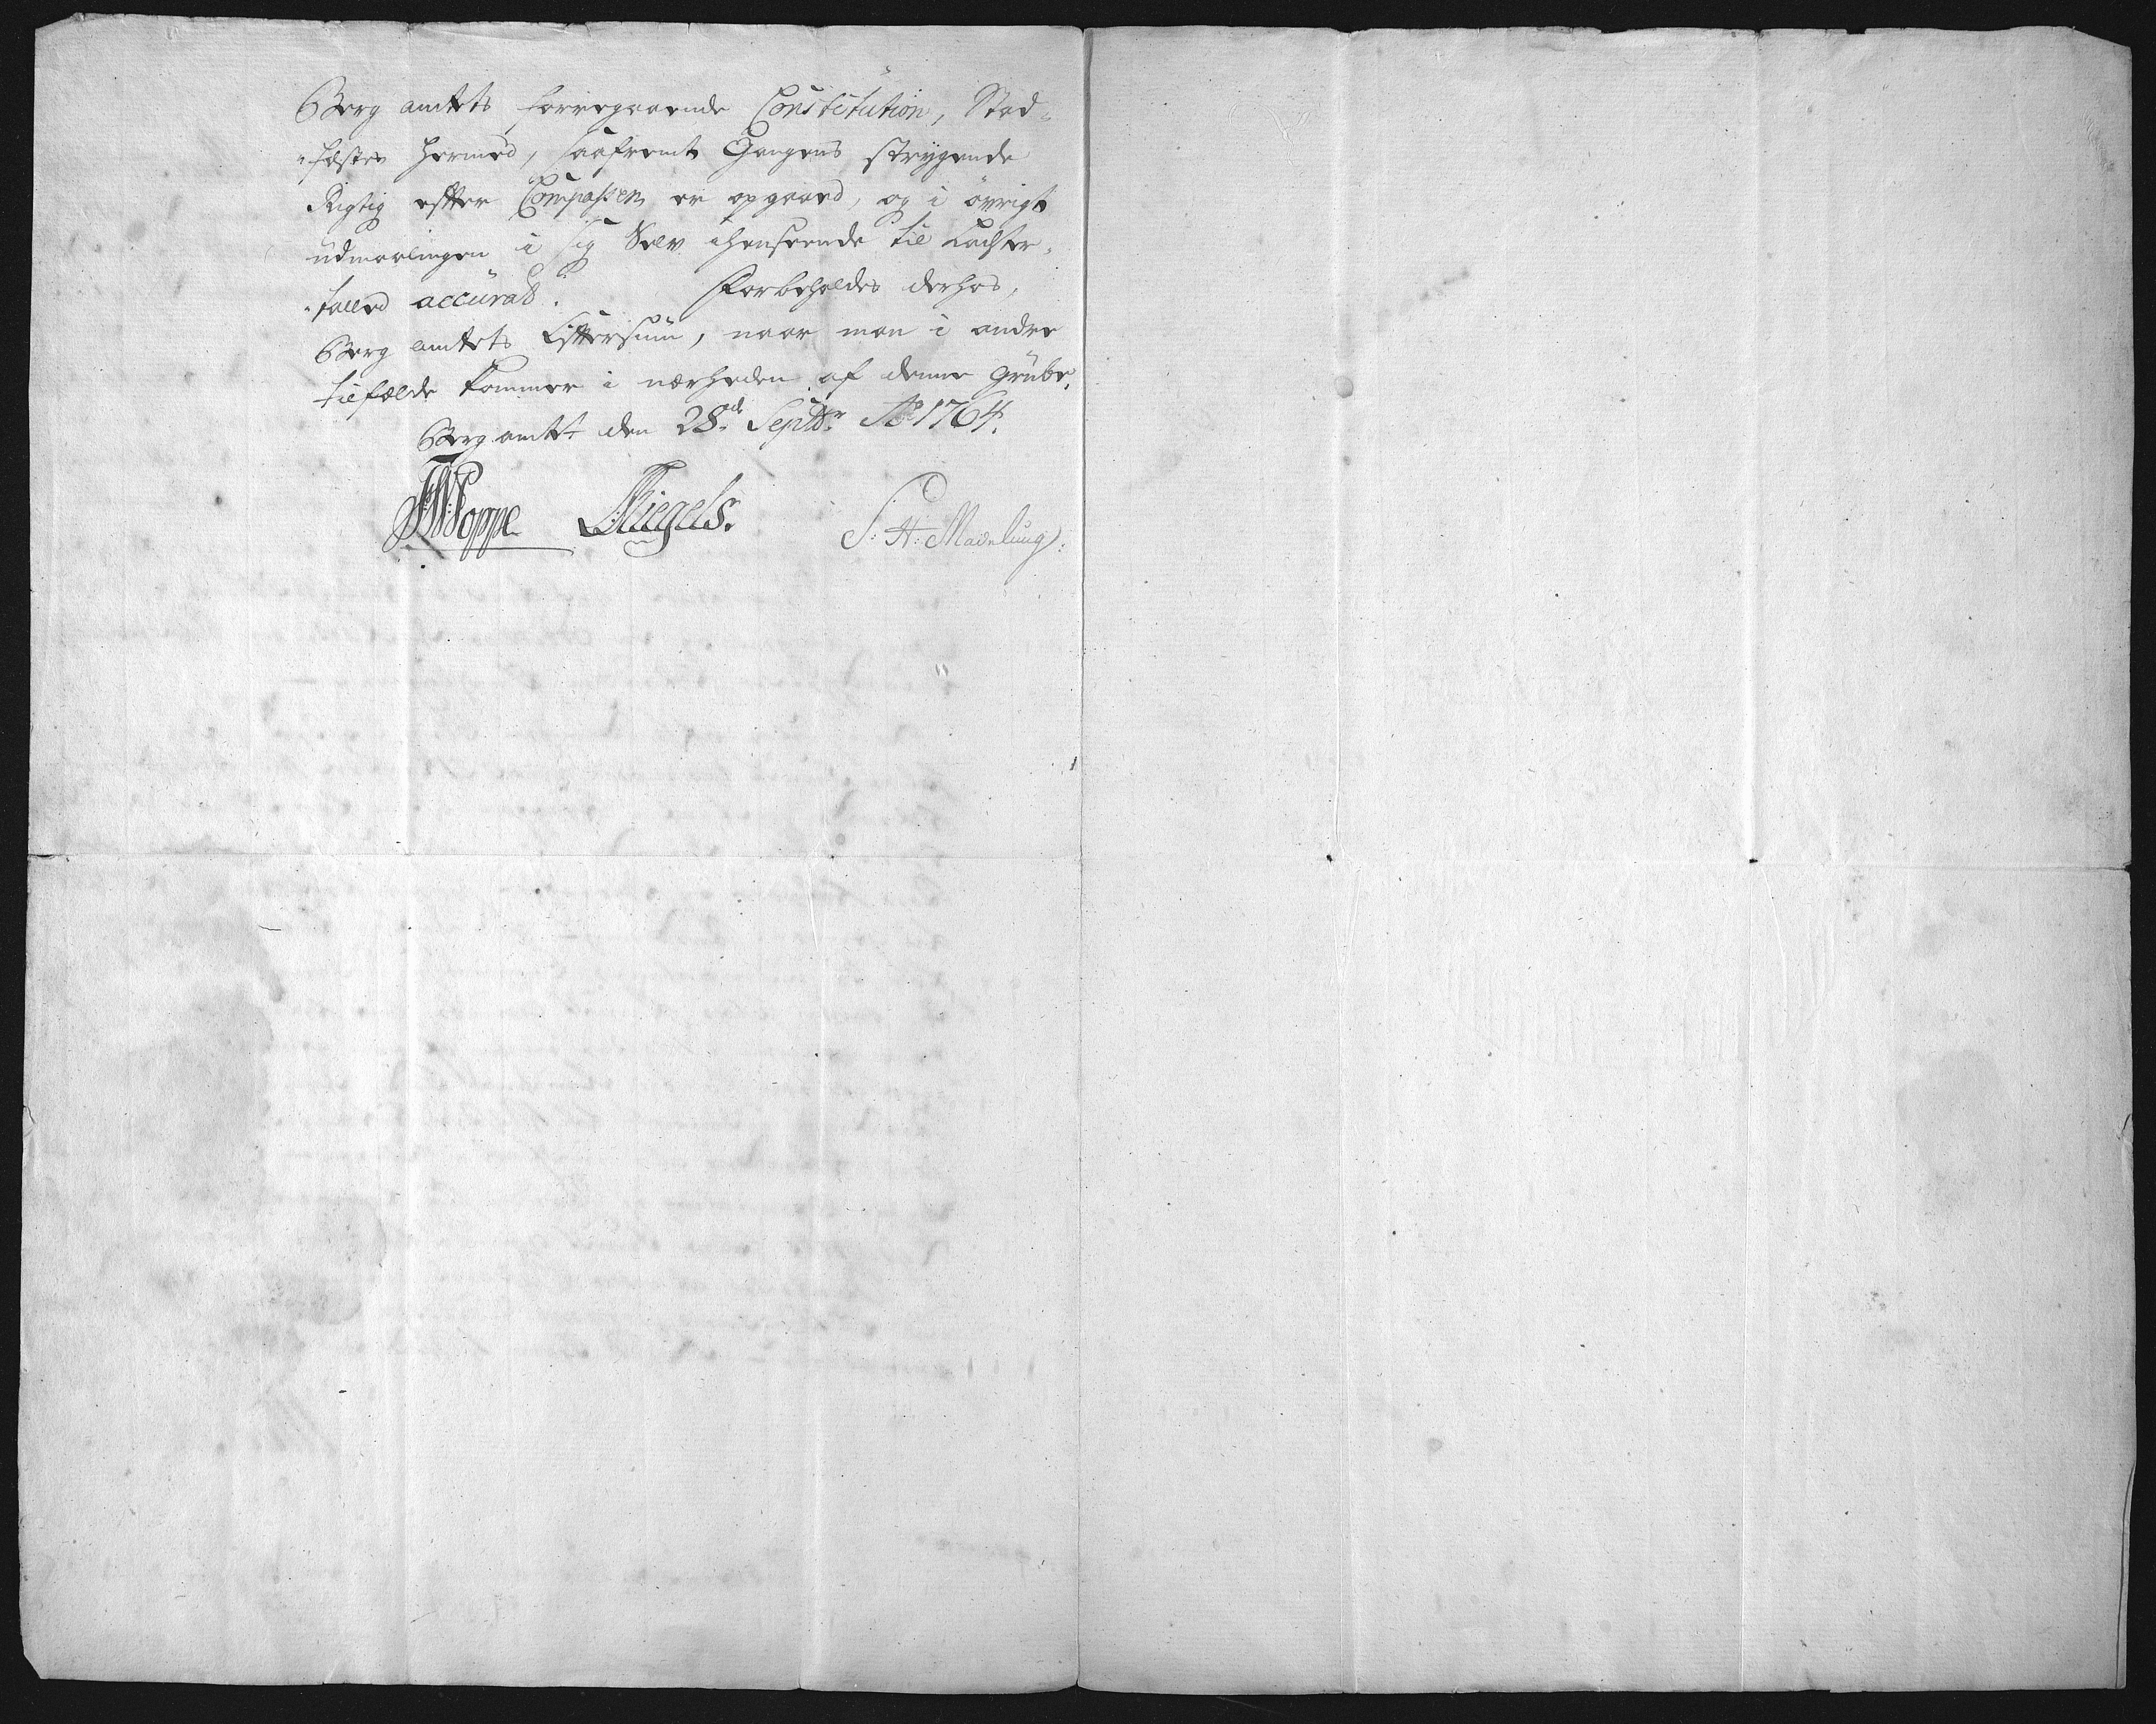 Berg amtets forregaaende Constitution, Stad-
-fæstes hermed, saafremt Gangens strygende
Rigtig efter Compassen er opgaaed, og i øvrigt
udmaalingen i sig Selv ihenseende til Lachter-
-talled accurat. Forbeholdes derhos,
Berg amtets Eftersuun, naar man i andre
tilfælde kommer i nærheden af denne Grube.
Berg amtet den 28de Septbr Ao 1764.
Poppe Riegels. S: H: Madelung: